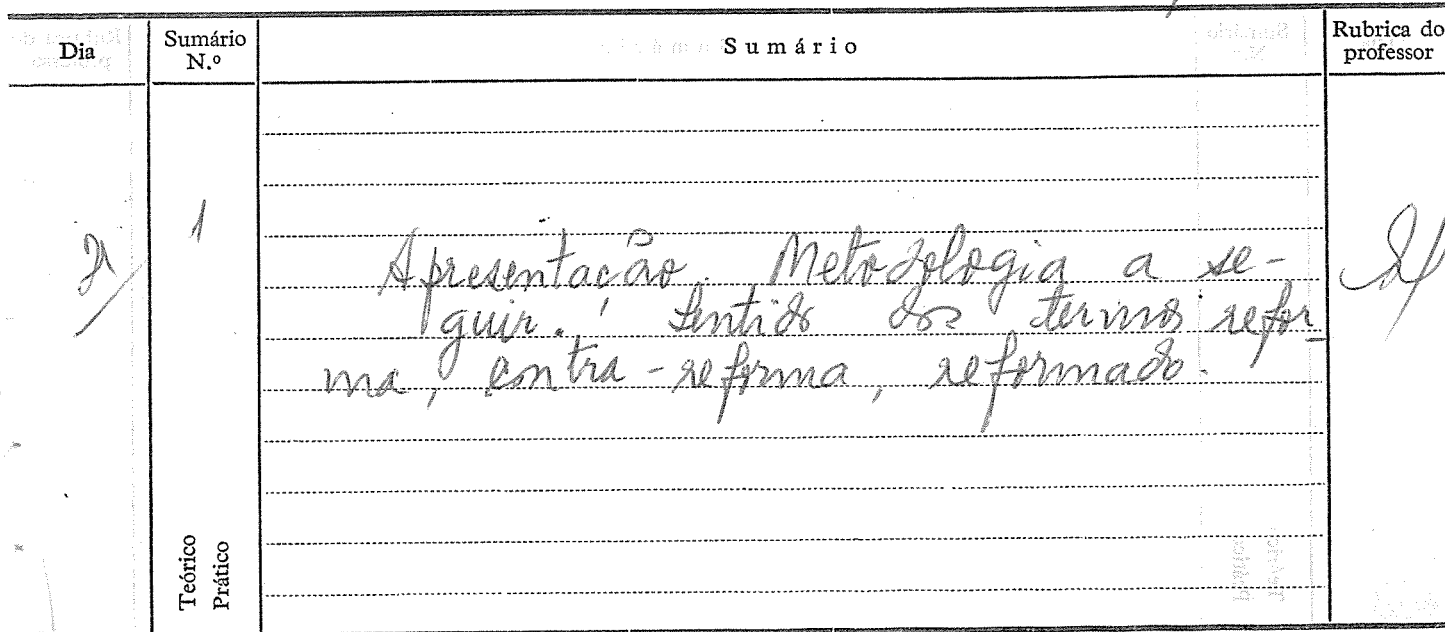 Dia
Sumário
N.º
Sumário
Rubrica do
professor
1
Apresentação. Metodologia a se-
guir. Sentido dos termos refor-
ma, contra-reforma, reformado.
Teórico
Prático